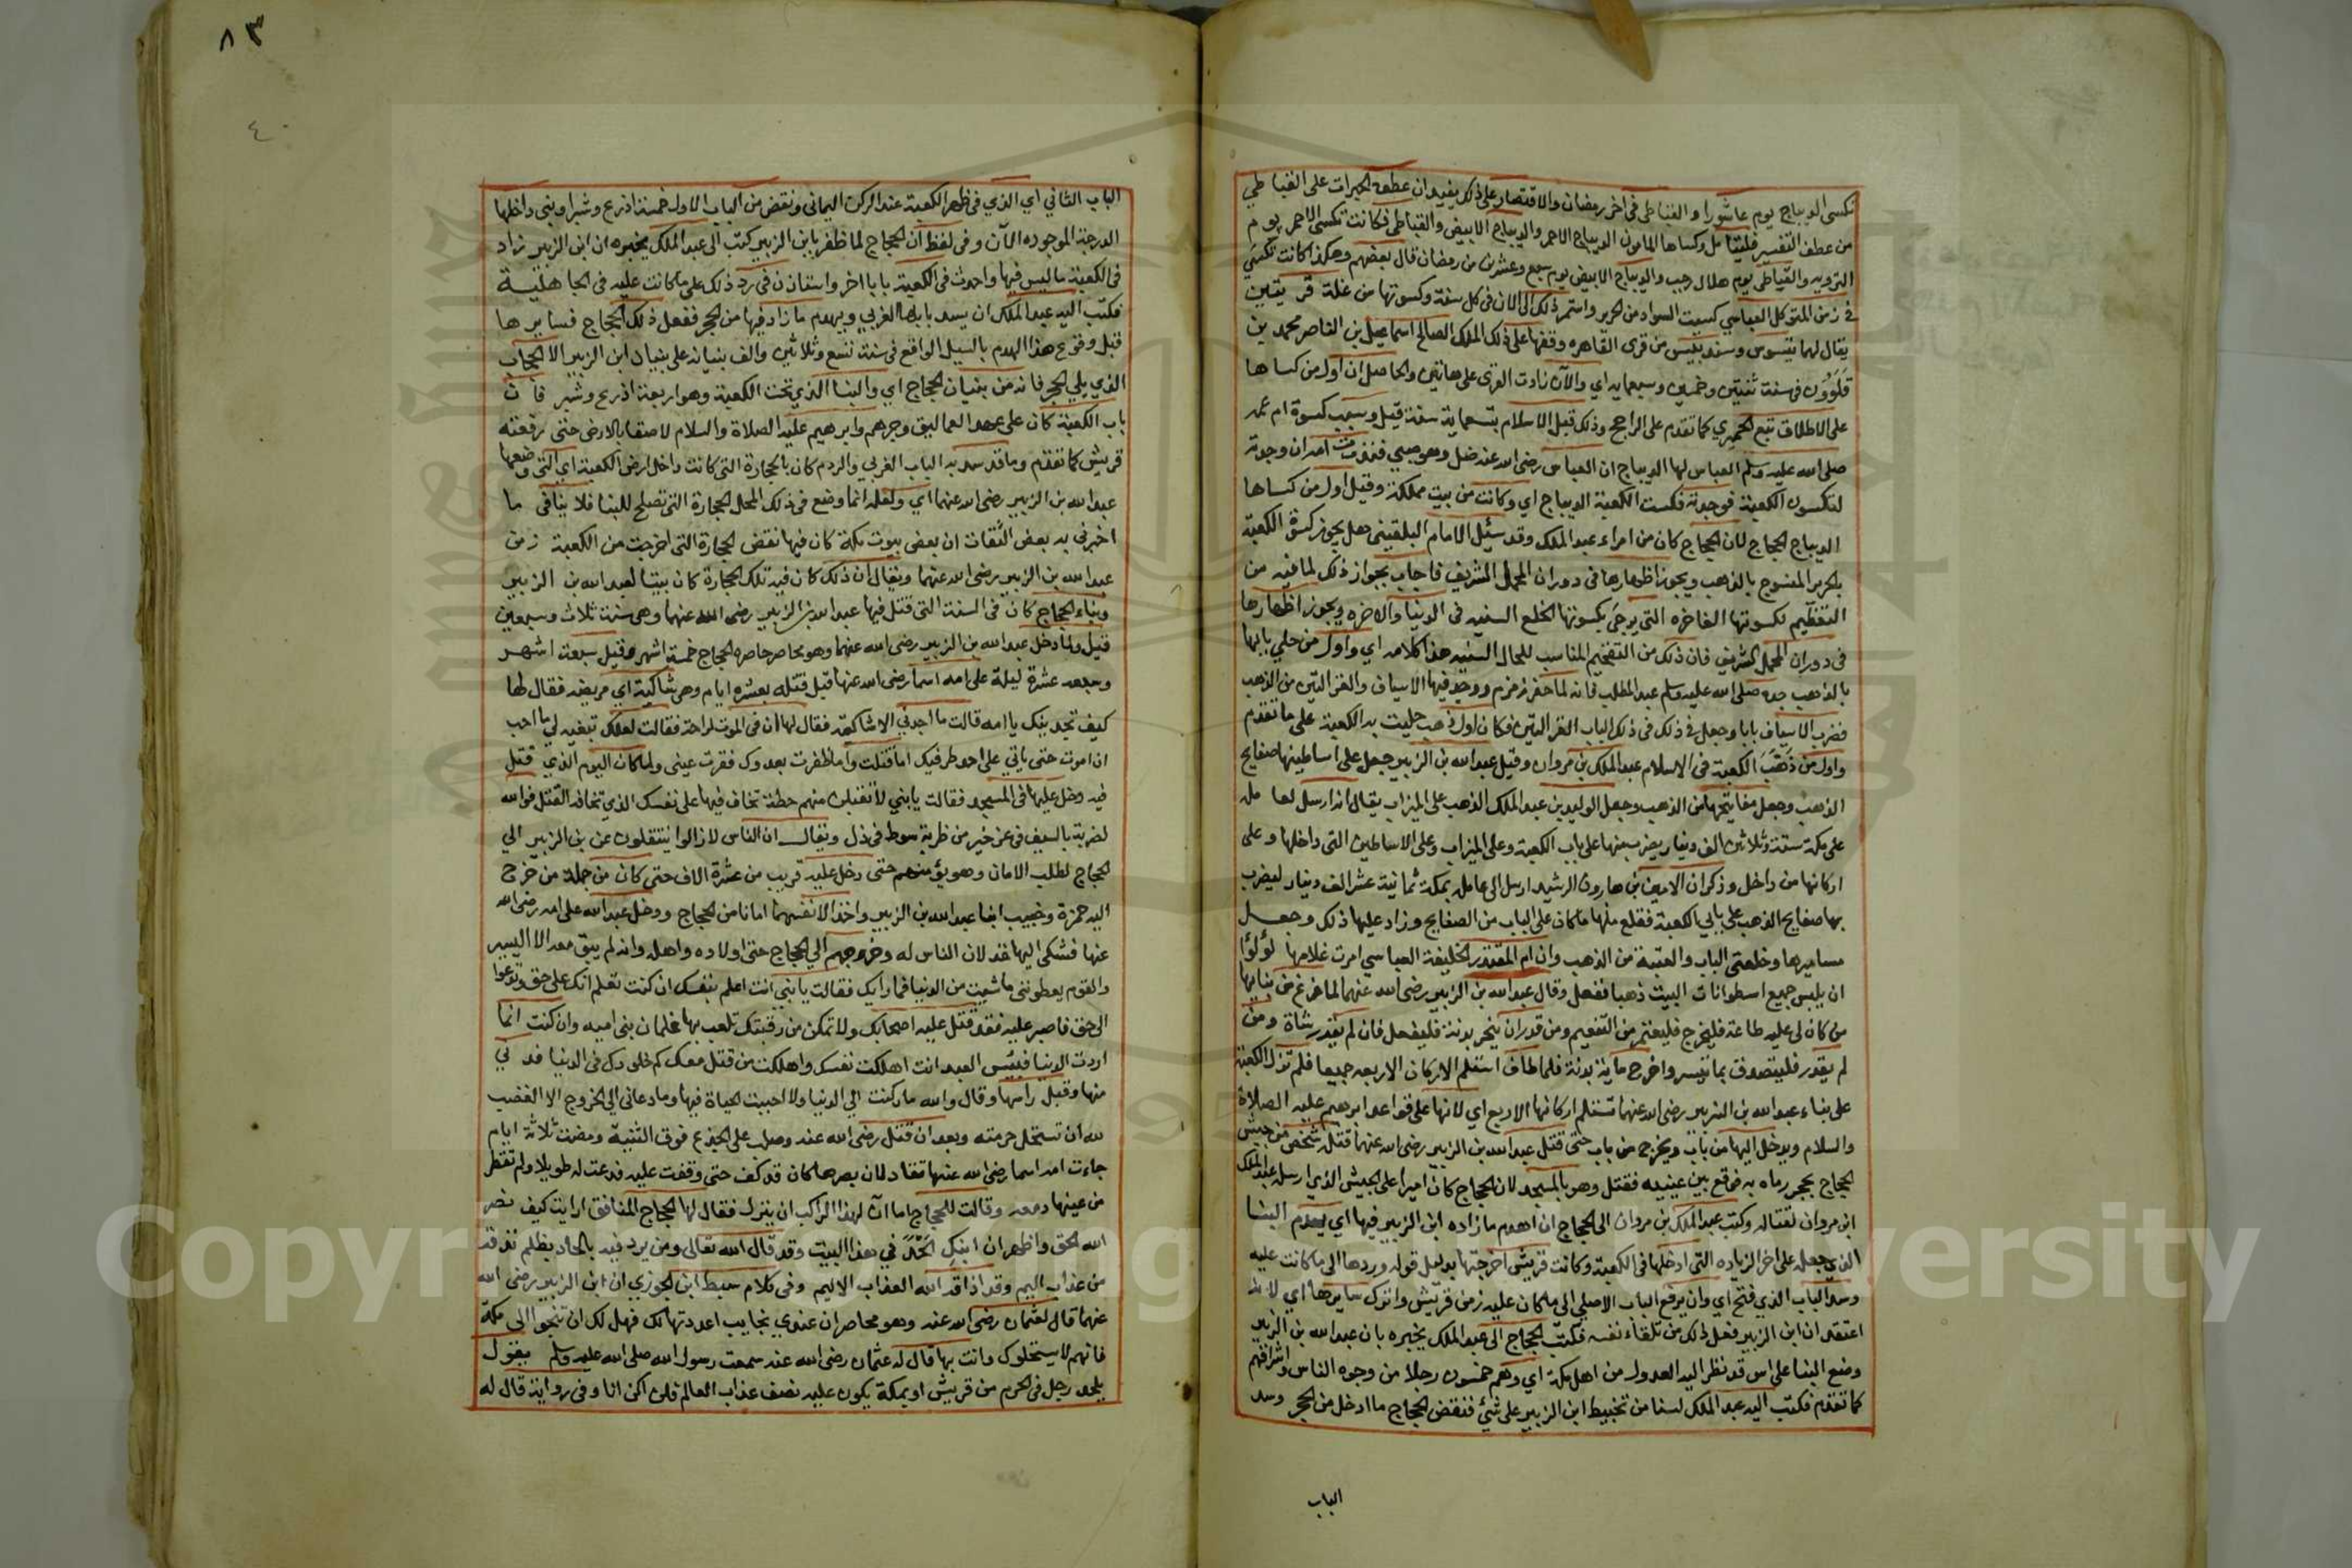 تكسى الديباج يوم عاشورا والقباطى فى اخر رمضان والاقتصار على ذلك يفيد ان عطف الحبرات على القباطي
من عطف التفسير فليتامل وكساها المامون الديباج الاحمر والديباج الابيض والقباطى فكانت تكسى الاحمر يوم
التروية والقباطى يوم هلال رجب والديباج الابيض يوم سبع وعشرين من رمضان قال بعضهم وهكذا كانت تكسى
فى زمن المتوكل العباسي كسيت السواد من الحرير واستمر ذلك الى الان فى كل سنة وكسوتها من غلة قريتين
يقال لهما بيسوس وسندبيس من قرى القاهره وقفها على ذلك الملك الصالح اسماعيل بن الناصر محمد بن
قلوون فى سنة ثنتين وخمسين وسبعمايه اي والآن زادت القرى على هاتين والحاصل ان اول من كساها
على الاطلاق تبع الحميري كما تقدم على الراجح وذلك قبل الاسلام بتسعماية سنة قيل وسبب كسوة ام عمه
صلى الله عليه وسلم العباس لها الديباج ان العباس رضى الله عنه ضل وهو صبي فنذرت امه ان وجدته
لتكسون الكعبة فوجدته فكست الكعبة الديباج اي وكانت من بيت مملكة وقيل اول من كساها
الديباج الحجاج لان الحجاج كان من امراء عبد الملك وقد سئل الامام البلقينى هل يجوز كسوة الكعبة
بالحرير المنسوج بالذهب ويجوز اظهارها فى دوران المحمل الشريف فاجاب بجواز ذلك لما فيه من
التعظيم لكسوتها الفاخره التى يرجى بكسوتها الخلع السنيه فى الدنيا والاخره ويجوز اظهارها
فى دوران المحمل الشريف فان ذلك من التفخيم المناسب للحال السنيه هذا كلامه اي واول من حلي بابها
بالذهب جده صلى الله عليه وسلم عبد المطلب فانه لما حفر زمزم ووجد فيها الاسياف والغزالتين من الذهب
فضرب الاسياف بابا وجعل فى ذلك الباب الغزالتين فكان اول ذهب حليت به الكعبة على ما تقدم
واول من ذهب الكعبة فى الاسلام عبد الملك بن مروان وقيل عبد الله بن الزبير جعل على اساطينها صفايح
الذهب وجعل مفاتيحها من الذهب وجعل الوليد بن عبد الملك الذهب على الميزاب يقال انه ارسل لعامله
على مكة ستة وثلاثين الف دينار يضرب منها على باب الكعبة وعلى الميزاب وعلى الاساطين التى داخلها وعلى
اركانها من داخل وذكر ان الامين بن هارون الرشيد ارسل الى عامله بمكة ثمانية عشر الف دينار ليضرب
بها صفايح الذهب على بابي الكعبة فقلع منها ما كان على الباب من الصفايح وزاد عليها ذلك وجعل
مساميرها وحلقتى الباب والعتبة من الذهب وان ام المقتدر الخليفة العباسي امرت غلامها لؤلؤا
ان يلبس جميع اسطوانات البيت ذهبا ففعل وقال عبد الله بن الزبير رضى الله عنهما لما فرغ من بنايها
من كان لى عليه طاعة فليخرج فليعتمر من التنعيم ومن قدر ان ينحر بدنة فليفعل فان لم يقدر شاة ومن
لم يقدر فليتصدق بما تيسر واخرج ماية بدنة فلما طاف استلم الاركان الاربعه جميعا فلم تزل الكعبة
على بناء عبد الله بن الزبير رضى الله عنهما تستلم اركانها الاربع اي لانها على قواعد ابرهيم عليه الصلاة
والسلام ويدخل اليها من باب ويخرج من باب حتى قتل عبد الله بن الزبير رضى الله عنهما قتله شخص من جيش
الحجاج بحجر رماه به فوقع بين عينيه فقتل وهو بالمسجد لان الحجاج كان اميرا على الجيش الذي ارسله عبد الملك
ابن مروان لقتاله وكتب عبد الملك بن مروان الى الحجاج ان اهدم ما زاده ابن الزبير فيها اي يهدم البنا
الذي جعل على اخر الزياده التى ادخلها فى الكعبة وكانت قريش اخرجتها بدليل قوله وردها الى ما كانت عليه
وسد الباب الذي فتح اي وان يرفع الباب الاصلي الى ما كان عليه زمن قريش واترك سايرها اي لانه
اعتقد ان ابن الزبير فعل ذلك من تلقاء نفسه فكتب الحجاج الى عبد الملك يخبره بان عبد الله بن الزبير
وضع البنا على اس قد نظر اليه العدول من اهل مكة اي وهم خمسون رجلا من وجوه الناس واشرافهم
كما تقدم فكتب اليه عبد الملك لسنا من تخبيط ابن الزبير على شئ فنقض الحجاج ما ادخل من الحجر وسد
الباب
٨٣
٤٠
الباب الثاني اي الذي فى ظهر الكعبة عند الركن اليمانى ونقص من الباب الاول خمسة اذرع وشبرا وبنى داخلها
الدرجة الموجوده الآن وفى لفظ ان الحجاج لما ظفر بابن الزبير كتب الى عبد الملك يخبره ان ابن الزبير زاد
فى الكعبة ما ليس فيها واحدث فى الكعبة بابا اخر واستاذن فى رد ذلك على ما كانت عليه فى الجاهلية
فكتب اليه عبد الملك ان يسد بابها الغربي ويهدم ما زاد فيها من الحجر ففعل ذلك الحجاج فسايرها
قبل وقوع هذا الهدم بالسيل الواقع فى سنة تسع وثلاثين والف بنيانه على بنيان ابن الزبير الا الحجاب
الذي يلي الحجر فانه من بنيان الحجاج اي والبنا الذي تحت الكعبة وهو اربعة اذرع وشبر فان
باب الكعبة كان على عهد العماليق وجرهم وابرهيم عليه الصلاة والسلام لاصقا بالارض حتى رفعته
قريش كما تقدم وما قد سد به الباب الغربي والردم كان بالحجارة التى كانت داخل ارض الكعبة اي التى وضعها
عبد الله بن الزبير رضى الله عنهما اي ولعله انما وضع فى ذلك المحل الحجارة التى تصلح للبنا فلا ينافى ما
اخبرنى به بعض الثقات ان بعض بيوت مكة كان فيها نقض الحجارة التى اخرجت من الكعبة زمن
عبد الله بن الزبير رضى الله عنهما ويقال ان ذلك كان فيه تلك الحجارة كان بيتا لعبد الله بن الزبير
وبناء الحجاج كان فى السنة التى قتل فيها عبد الله بن الزبير رضى الله عنهما وهى سنة ثلاث وسبعين
قيل ولما دخل عبد الله بن الزبير رضى الله عنهما وهو محاصر حاصره الحجاج خمسة اشهر وقيل سبعة اشهر
وسبعه عشرة ليلة على امه اسما رضى الله عنها قبل قتله بعشره ايام وهى شاكية اي مريضه فقال لها
كيف تجدينك يا امه قالت ما اجدني الا شاكية فقال لها ان فى الموت لراحة فقالت لعلك تبغيه لي ما احب
ان اموت حتى ياتي على احد طرفيك اما قتلت واما ظفرت بعدوك فقرت عينى ولما كان اليوم الذي قتل
فيه دخل عليها فى المسجد فقالت يا بني لا تقبلن منهم خطة تخاف فيها على نفسك الذي تخافه القتل فوالله
لضربة بالسيف فى عز خير من ضربة سوط فى ذل ويقال ان الناس لازالوا ينتقلون عن بن الزبير الي
الحجاج لطلب الامان وهو يؤمنهم حتى دخل عليه قريب من عشرة الاف حتى كان من جملة من خرج
اليه حمزة وخبيب ابنا عبد الله بن الزبير واخذا لانفسهما امانا من الحجاج ودخل عبد الله على امه رضى الله
عنها فشكى اليها خذلان الناس له وخروجهم الي الحجاج حتى اولاده واهله وانه لم يبق معه الا اليسير
والقوم يعطوننى ما شيت من الدنيا فما رايك فقالت يا بنى انت اعلم بنفسك ان كنت تعلم انك على حق وتدعوا
الى حق فاصبر عليه فقد قتل عليه اصحابك ولا تمكن من رقبتك تلعب بها غلمان بنى اميه وان كنت انما
اردت الدنيا فبئس العبد انت اهلكت نفسك واهلكت من قتل معك كم خلودك فى الدنيا فدني
منها وقبل راسها وقال والله ما ركنت الي الدنيا ولا احببت الحياة فيها وما دعانى الي الخروج الا الغضب
لله ان تستحل حرمته وبعد ان قتل رضى الله عنه وصلب على الجذع فوق الثنية ومضت ثلاثة ايام
جاءت امه اسما رضى الله عنها تقاد لان بصرها كان قد كف حتى وقفت عليه فدعت له طويلا ولم تقطر
من عينها دمعه وقالت للحجاج اما آن لهذا الراكب ان ينزل فقال لها الحجاج المنافق ارايت كيف نصر
الله الحق واظهره ان ابنك الحد في هذا البيت وقد قال الله تعالى ومن يرد فيه بالحاد بظلم نذقه
من عذاب اليم وقد اذاقه الله العذاب الاليم وفى كلام سبط ابن الجوزي ان ابن الزبير رضى الله
عنهما قال لعثمان رضى الله عنه وهو محاصر ان عندي نجايب اعددتها لك فهل لك ان تنجوا الى مكة
فانهم لا يستحلوك وانت بها قال له عثمان رضى الله عنه سمعت رسول الله صلى الله عليه وسلم يقول
يلحد رجل فى الحرم من قريش او بمكة يكون عليه نصف عذاب العالم فلن اكن انا وفى رواية قال له